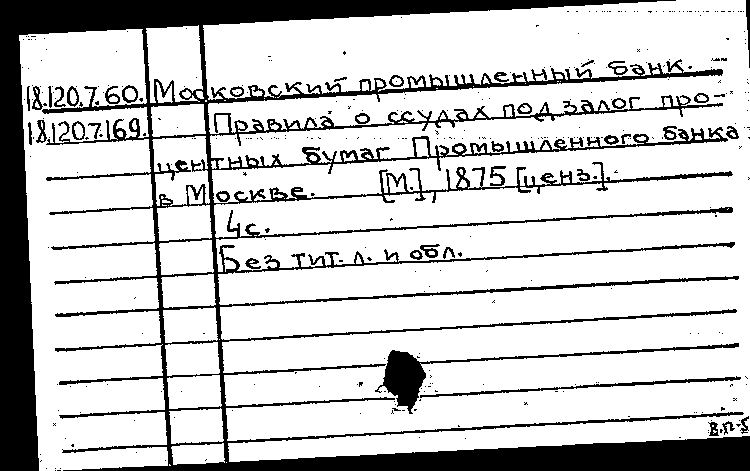 18.120.7.60. Московский промышленный банк.
18.120.7.169. Правила о ссудах под залог про-
центных бумаг Промышленного банка
в Москве. [М.], 1875 [ценз.].
4с.
Без тит. л. и обл.